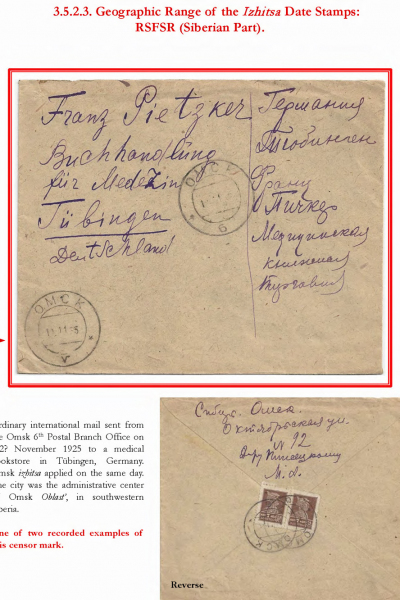 3.5.2.3. Geographic Range of the Izhitsa Date Stamps:
RSFSR (Siberian Part).
Franz Pietzker
Buchhandlung
für Medezin
Tübingen
Deutschland
Германия
Тюбинген
Франц
Пичкер
Медицинская
книжная
Торговля
ОМСК
6
ОМСК
11 25
rdinary international mail sent from
e Omsk 6th Postal Branch Office on
2? November 1925 to a medical
okstore in Tübingen, Germany.
msk izhitsa applied on the same day.
e city was the administrative center
Omsk Oblast', in southwestern
beria.
ne of two recorded examples of
is censor mark.
Сибирь. Омск.
Октябрьская ул.
№ 12
М. А.
ОМСК
Reverse